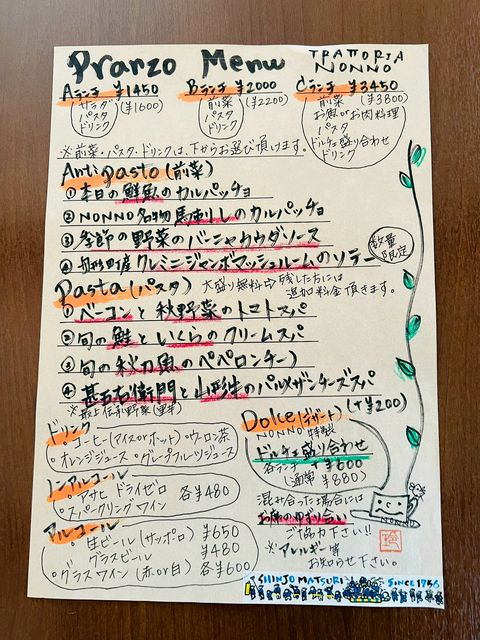 Pranzo Menu
TRATTORIA NONNO
Aランチ ¥1450
(¥1600)
サラダ
パスタ
ドリンク
Bランチ ¥2000
(¥2200)
前菜
パスタ
ドリンク
Cランチ ¥3450
(¥3800)
前菜
お魚orお肉料理
パスタ
ドルチェ盛り合わせ
ドリンク
※前菜・パスタ・ドリンクは、下からお選び頂けます。
Antipasto(前菜)
①本日の鮮魚のカルパッチョ
②NONNO名物馬刺しのカルパッチョ
③季節の野菜のバーニャカウダソース
④舟形町産クレミニジャンボマッシュルームのソテー
数量限定
Pasta(パスタ) 大盛り無料⇨残した方には
追加料金頂きます。
①ベーコンと秋野菜のトマトスパ
②旬の鮭といくらのクリームスパ
③旬の秋刀魚のペペロンチーノ
④甚五右衛門と山形牛のパルメザンチーズスパ
※最上伝承野菜(里芋)
(+¥200)
ドリンク
・コーヒー(アイスorホット)・ウーロン茶
・オレンジジュース・グレープフルーツジュース
ノンアルコール
・アサヒ ドライゼロ
・スパークリングワイン 各¥480
アルコール
・生ビール(サッポロ) ¥650
グラスビール ¥480
・グラスワイン(赤or白) 各¥600
Dolce(デザート)
NONNO特製
ドルチェ盛り合わせ
各ランチ +¥600
(通常 ¥880)
混み合った場合には
お席のゆずり合い
ご協力下さい!!
※アレルギー等
お知らせ下さい。
NONNO
SHINJO MATSURI SINCE1756